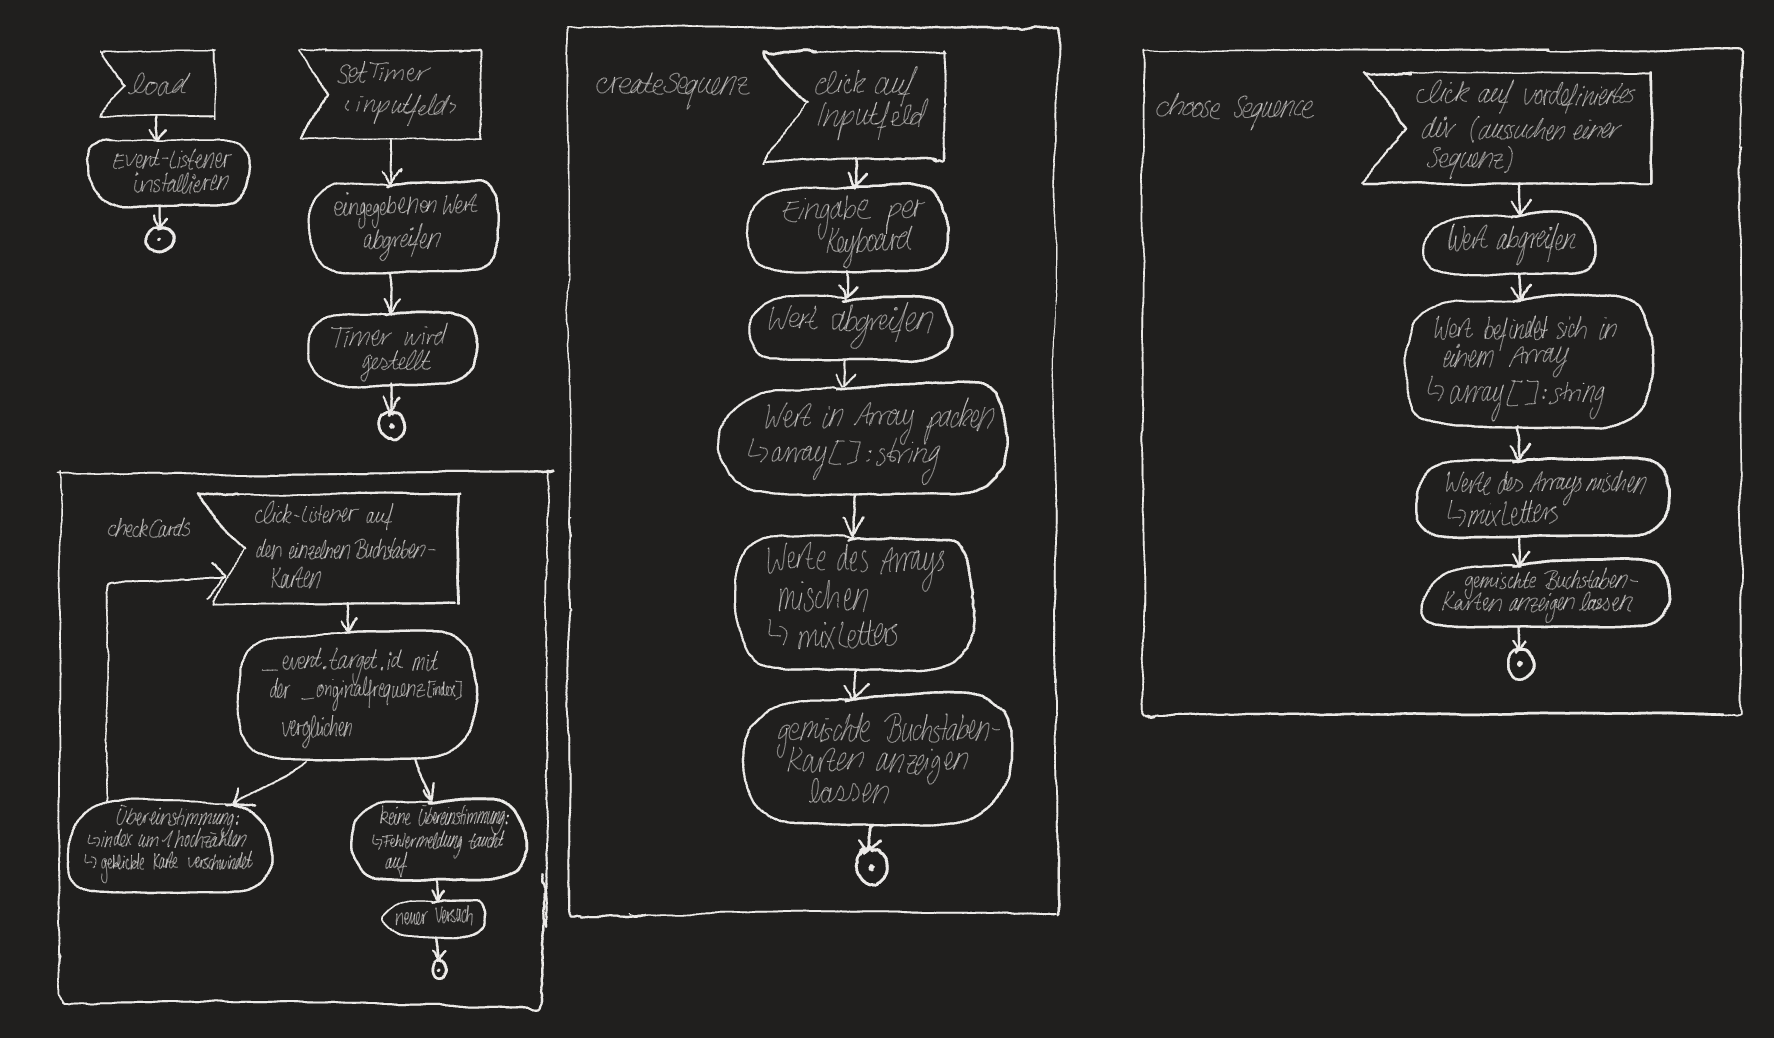 load
Event-Listener
installieren
setTimer
<inputfeld>
eingegebenen Wert
abgreifen
Timer wird
gestellt
checkCards
click-Listener auf
den einzelnen Buchstaben-
Karten
_event.target.id mit
der _originalfrequenz[index]
vergleichen
Übereinstimmung:
↳index um 1 hochzählen
↳ geklickte Karte verschwindet
keine Übereinstimmung:
↳Fehlermeldung taucht
auf
neuer Versuch
createSequenz
click auf
Inputfeld
Eingabe per
Keyboard
Wert abgreifen
Wert in Array packen
↳array[]:string
Werte des Arrays
mischen
↳ mixLetters
gemischte Buchstaben-
Karten anzeigen
lassen
choose Sequence
click auf vordefiniertes
div (aussuchen einer
Sequenz)
Wert abgreifen
Wert befindet sich in
einem Array
↳array[]:string
Werte des Arrays mischen
↳mixLetters
gemischte Buchstaben-
Karten anzeigen lassen